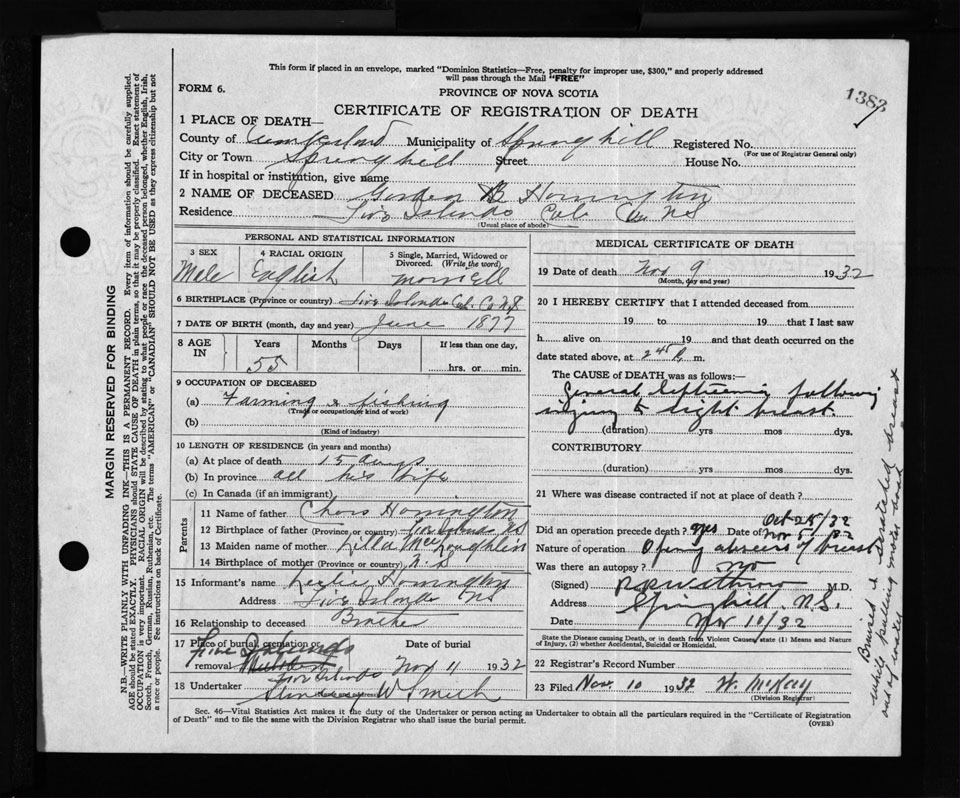 This form if placed in an envelope, marked "Dominion Statistics—Free, penalty for improper use, $300," and properly addressed
will pass through the Mail "FREE"
1383
FORM 6.
PROVINCE OF NOVA SCOTIA
CERTIFICATE OF REGISTRATION OF DEATH
1 PLACE OF DEATH—
County of Cumberland Municipality of Springhill Registered No.
(For use of Registrar General only)
City or Town Springhill Street House No.
If in hospital or institution, give name
2 NAME OF DECEASED Gordon Horrington
Residence Five Islands Col. Co. N.S
(Usual place of abode)
PERSONAL AND STATISTICAL INFORMATION
3 SEX Male
4 RACIAL ORIGIN English
5 Single, Married, Widowed or Divorced. (Write the word)
6 BIRTHPLACE (Province or country) Five Islands Col. Co. N.S.
7 DATE OF BIRTH (month, day and year) June 1877
8 AGE IN Years 55 Months Days If less than one day,
hrs. or min.
9 OCCUPATION OF DECEASED
(a) Farming & fishing
(Trade or occupation or kind of work)
(b)
(Kind of industry)
10 LENGTH OF RESIDENCE (in years and months)
(a) At place of death 15 days
(b) In province all his life
(c) In Canada (if an immigrant)
Parents
11 Name of father Chars Horrington
12 Birthplace of father (Province or country) Five Islands NS
13 Maiden name of mother McLoughlin
14 Birthplace of mother (Province or country) N.S
15 Informant's name Leslie Horrington
Address Five Islands NS
16 Relationship to deceased Brother
17 Place of burial, cremation or removal Five Islands
Date of burial Nov 11 1932
18 Undertaker W Smith
MEDICAL CERTIFICATE OF DEATH
19 Date of death Nov 9 1932
(Month, day and year)
20 I HEREBY CERTIFY that I attended deceased from
19 to 19 that I last saw
h alive on 19 and that death occurred on the
date stated above, at 2 45 P. m.
The CAUSE OF DEATH was as follows:—
General septicemia following
injury to right breast.
(duration) yrs mos dys.
CONTRIBUTORY
(duration) yrs mos dys.
21 Where was disease contracted if not at place of death?
Did an operation precede death? yes Date of Oct 25/32
Nov 5/32
Nature of operation Opening abscess of breast
Was there an autopsy? no
(Signed) M.D.
Address Springhill, N.S.
Date Nov 10/32
State the Disease causing Death, or in death from Violent Causes, state (1) Means and Nature
of Injury, (2) whether Accidental, Suicidal or Homicidal.
22 Registrar's Record Number
23 Filed Nov. 10 1932 W. McKay
(Division Registrar)
Sec. 46—Vital Statistics Act makes it the duty of the Undertaker or person acting as Undertaker to obtain all the particulars required in the "Certificate of Registration
of Death" and to file the same with the Division Registrar who shall issue the burial permit. (OVER)
MARGIN RESERVED FOR BINDING
N.B.—WRITE PLAINLY WITH UNFADING INK—THIS IS A PERMANENT RECORD. Every item of information should be carefully supplied.
AGE should be stated EXACTLY. PHYSICIANS should STATE CAUSE OF DEATH in plain terms, so that it may be properly classified. Exact statement of
OCCUPATION is very important. RACIAL ORIGIN will be described by stating to what people or race the deceased person belonged, whether English, Irish,
Scotch, French, German, Russian, Ruthenian, etc. The terms "AMERICAN" or "CANADIAN" SHOULD NOT BE USED as they express citizenship but not
a race or people. See instructions on back of Certificate.
Bruised & breast
while pulling motor boat
out of water